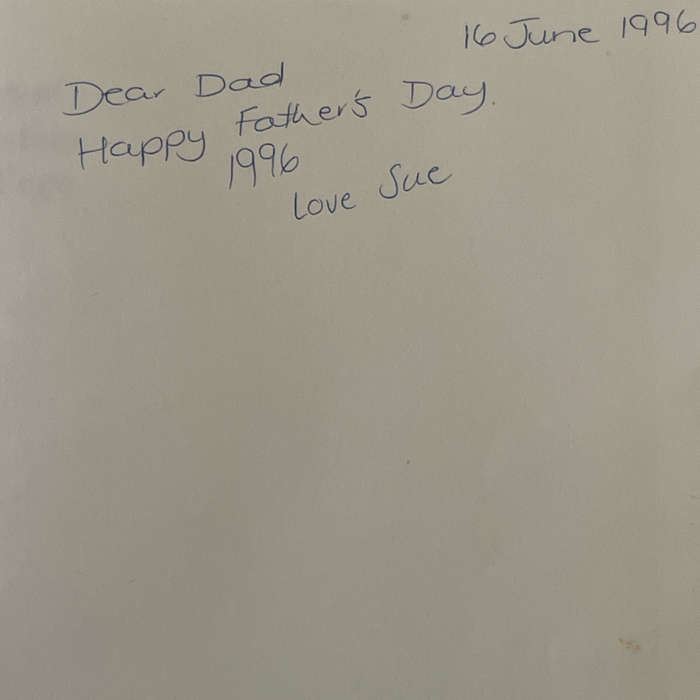 16 June 1996
Dear Dad
Happy Father's Day.
1996
Love Sue